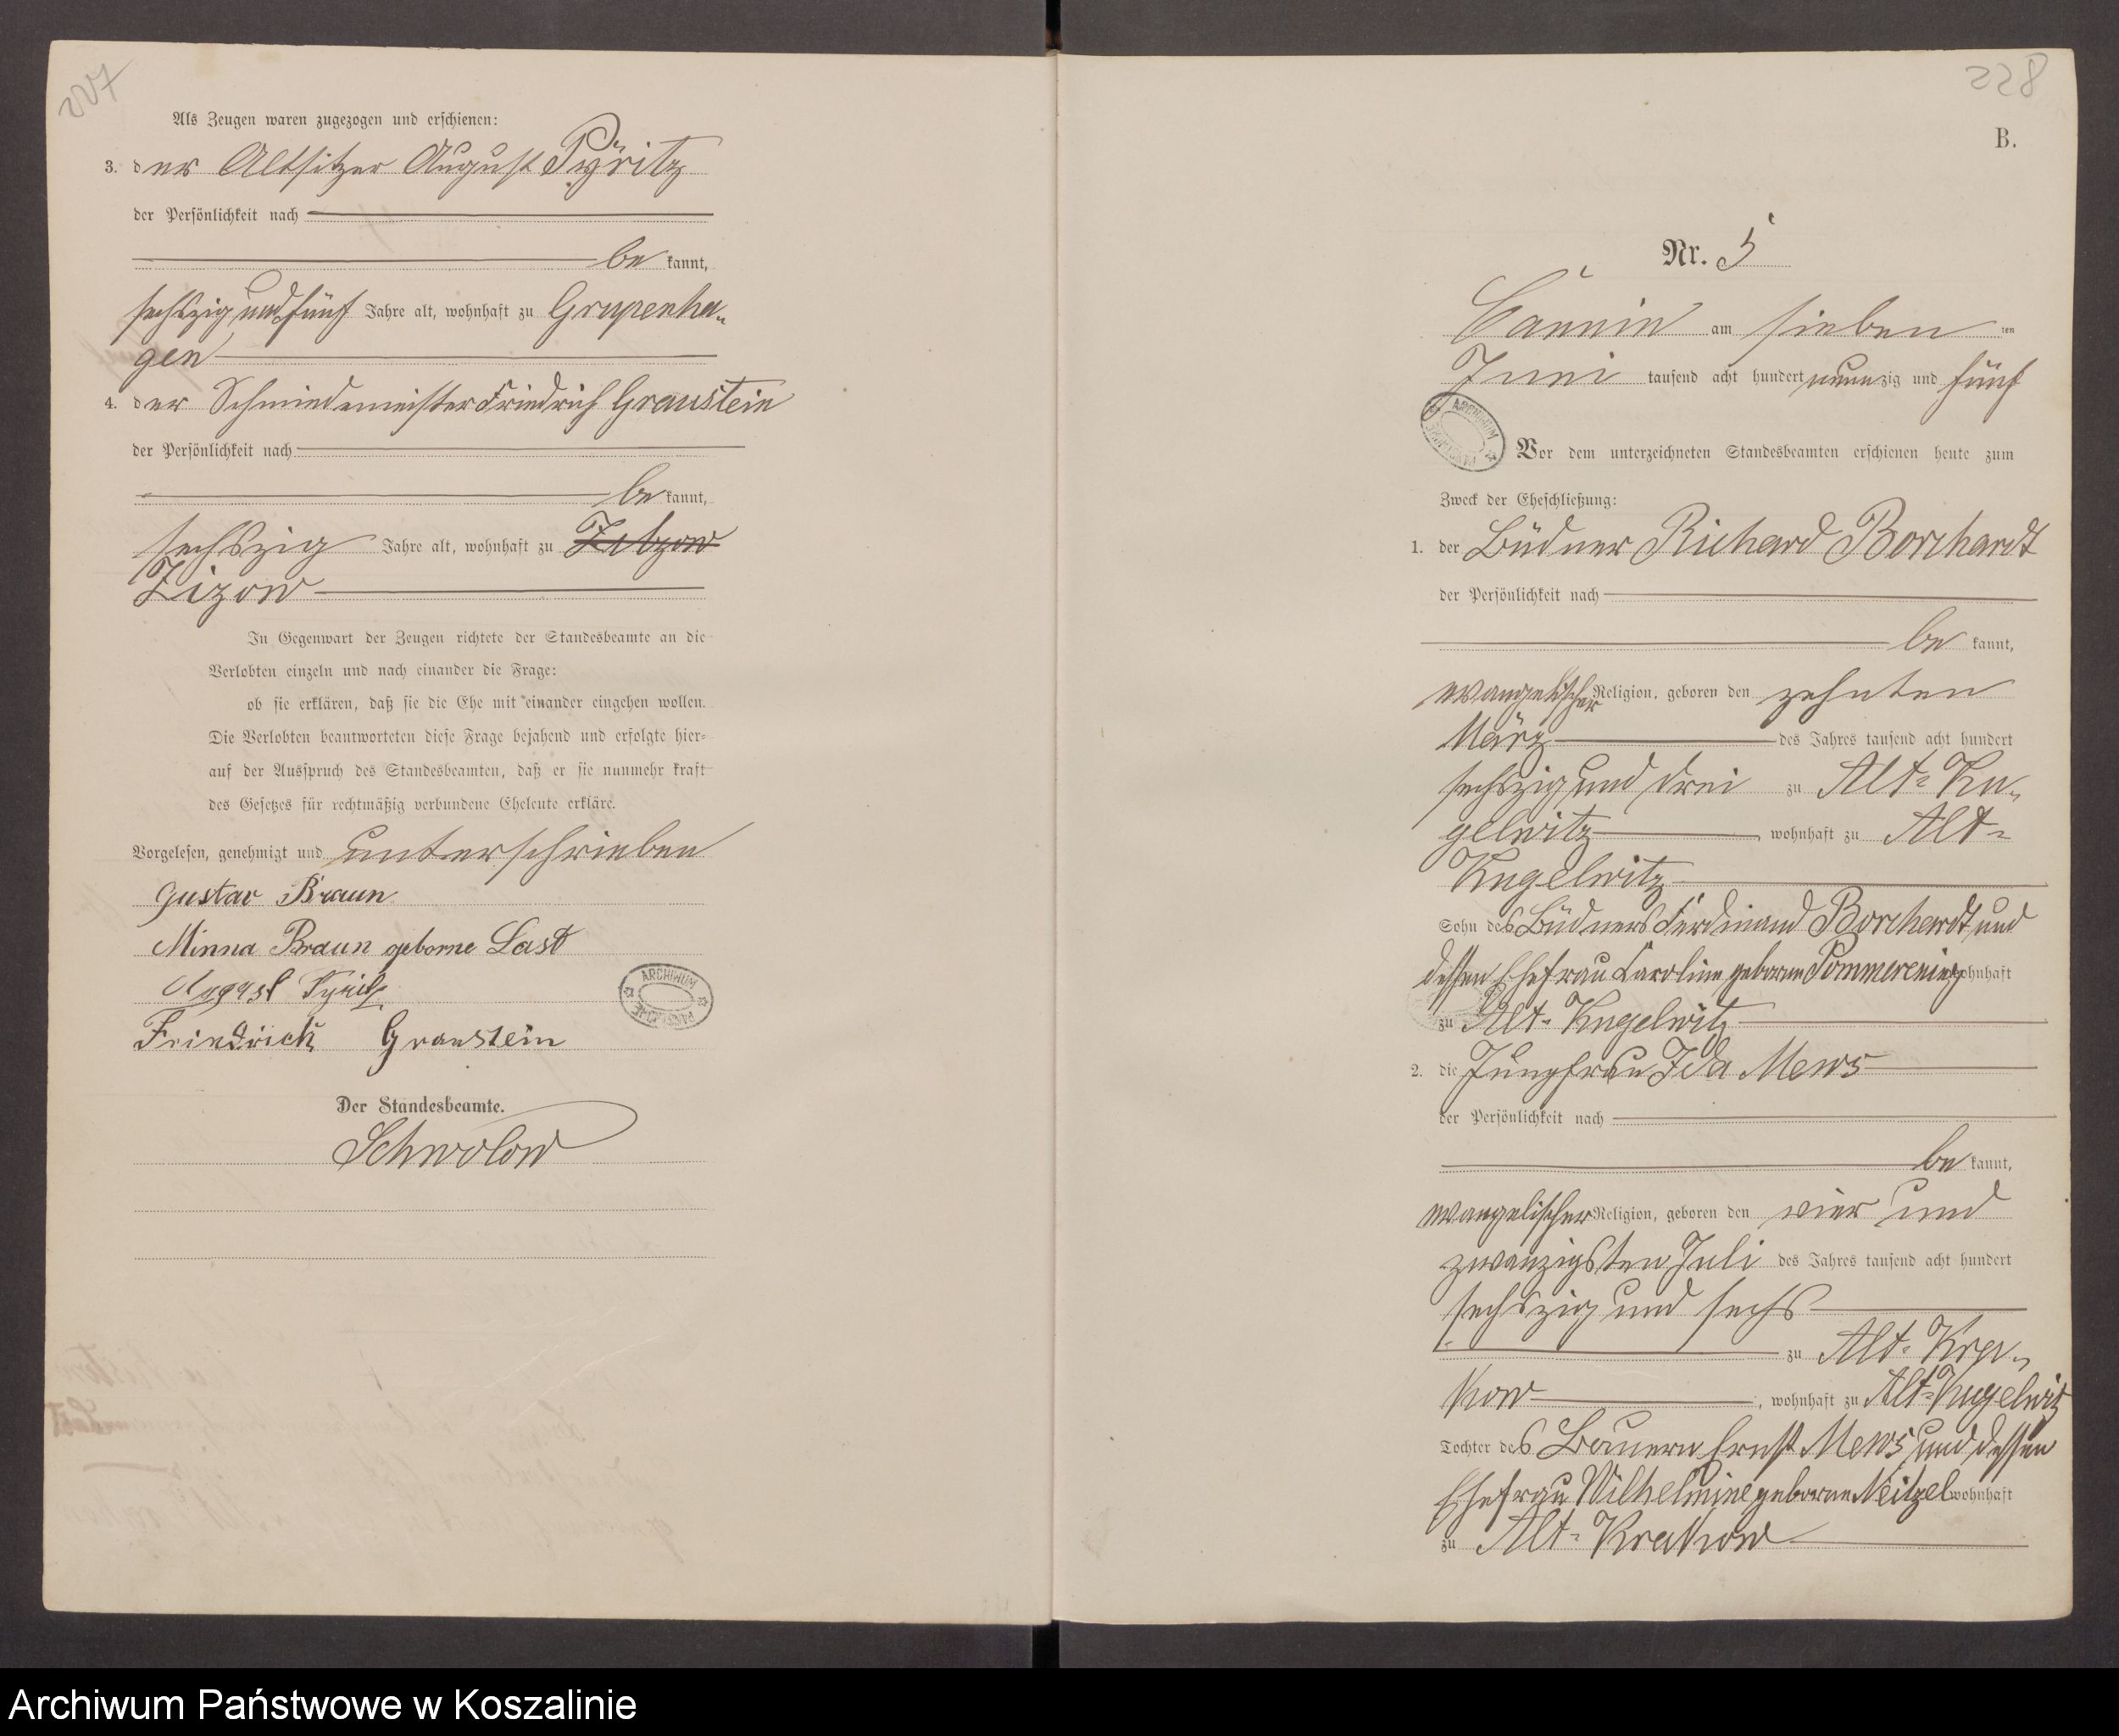 207
Als Zeugen waren zugezogen und erschienen:
3. der Altsitzer August Pyritz
der Persönlichkeit nach
be kannt,
sechszig und fünf Jahre alt, wohnhaft zu Grupenha-
gen
4. der Schmiedemeister Friedrich Graustein
der Persönlichkeit nach
be kannt,
sechszig Jahre alt, wohnhaft zu
Zizow
In Gegenwart der Zeugen richtete der Standesbeamte an die
Verlobten einzeln und nach einander die Frage:
ob sie erklären, daß sie die Ehe mit einander eingehen wollen.
Die Verlobten beantworteten diese Frage bejahend und erfolgte hier-
auf der Ausspruch des Standesbeamten, daß er sie nunmehr kraft
des Gesetzes für rechtmäßig verbundene Eheleute erkläre.
Vorgelesen, genehmigt und unterschrieben
Gustav Braun
Minna Braun geborne Last
August Pyritz
Friedrich Graustein
ARCHIWUM
Der Standesbeamte.
Schwolow
228
B.
Nr. 5
Cannin am sieben ten
Juni tausend acht hundert neunzig und fünf
ARCHIWUM
Vor dem unterzeichneten Standesbeamten erschienen heute zum
Zweck der Eheschließung:
1. der Büdner Richard Borchardt
der Persönlichkeit nach
be kannt,
evangelischer Religion, geboren den zehnten
März des Jahres tausend acht hundert
sechszig und drei zu Alt-Ku-
gelwitz, wohnhaft zu Alt-
Kugelwitz
Sohn des Büdners Ferdinand Borchardt und
dessen Ehefrau Caroline geborene Pommerening wohnhaft
zu Alt-Kugelwitz
2. die Jungfrau Ida Mews
der Persönlichkeit nach
be kannt,
evangelischer Religion, geboren den vier und
zwanzigsten Juli des Jahres tausend acht hundert
sechszig und sechs
zu Alt-Kra-
kow, wohnhaft zu Alt-Kugelwitz
Tochter des Bauern Ernst Mews und dessen
Ehefrau Wilhelmine geborene Neitzel wohnhaft
zu Alt-Krakow
Archiwum Państwowe w Koszalinie